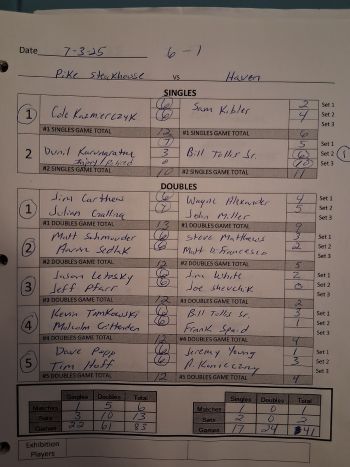 Date 7-3-25 6-1
Pike Steakhouse vs Haven
SINGLES
1 Cole Kazmierczyk 6 Sam Kibler 2 Set 1
6 4 Set 2
Set 3
#1 SINGLES GAME TOTAL 12 #1 SINGLES GAME TOTAL 6
2 Karunaratna 7 Bill Tolls Sr. 5 Set 1
3 6 Set 2 1
Injury/Retired 0 Set 3
#2 SINGLES GAME TOTAL 10 #2 SINGLES GAME TOTAL 11
DOUBLES
1 Jim Carthew 6 Wayne Alexander 4 Set 1
Julian 7 John Miller 5 Set 2
Set 3
#1 DOUBLES GAME TOTAL 13 #1 DOUBLES GAME TOTAL 9
2 Matt Schmurder 6 Steve Matthews 3 Set 1
Sedlak 6 Matt DiFrancesco 2 Set 2
Set 3
#2 DOUBLES GAME TOTAL 12 #2 DOUBLES GAME TOTAL 5
3 Jason Letosky 6 Jim White 2 Set 1
Jeff Pfarr 6 Joe Shevchik 0 Set 2
Set 3
#3 DOUBLES GAME TOTAL 12 #3 DOUBLES GAME TOTAL 2
4 Kevin Tomkowski 6 Bill Tolls Sr. 3 Set 1
Malcolm Crittenden 6 Frank Spaid 1 Set 2
Set 3
#4 DOUBLES GAME TOTAL 12 #4 DOUBLES GAME TOTAL 4
5 Dave Papp 6 Jeremy Young 1 Set 1
Tim Hoff 6 3 Set 2
Set 3
#5 DOUBLES GAME TOTAL 12 #5 DOUBLES GAME TOTAL 4
Singles Doubles Total Singles Doubles Total
Matches 1 5 6 Matches 1 0 1
Sets 3 10 13 Sets 2 0 2
Games 22 61 83 Games 17 24 41
Exhibition
Players